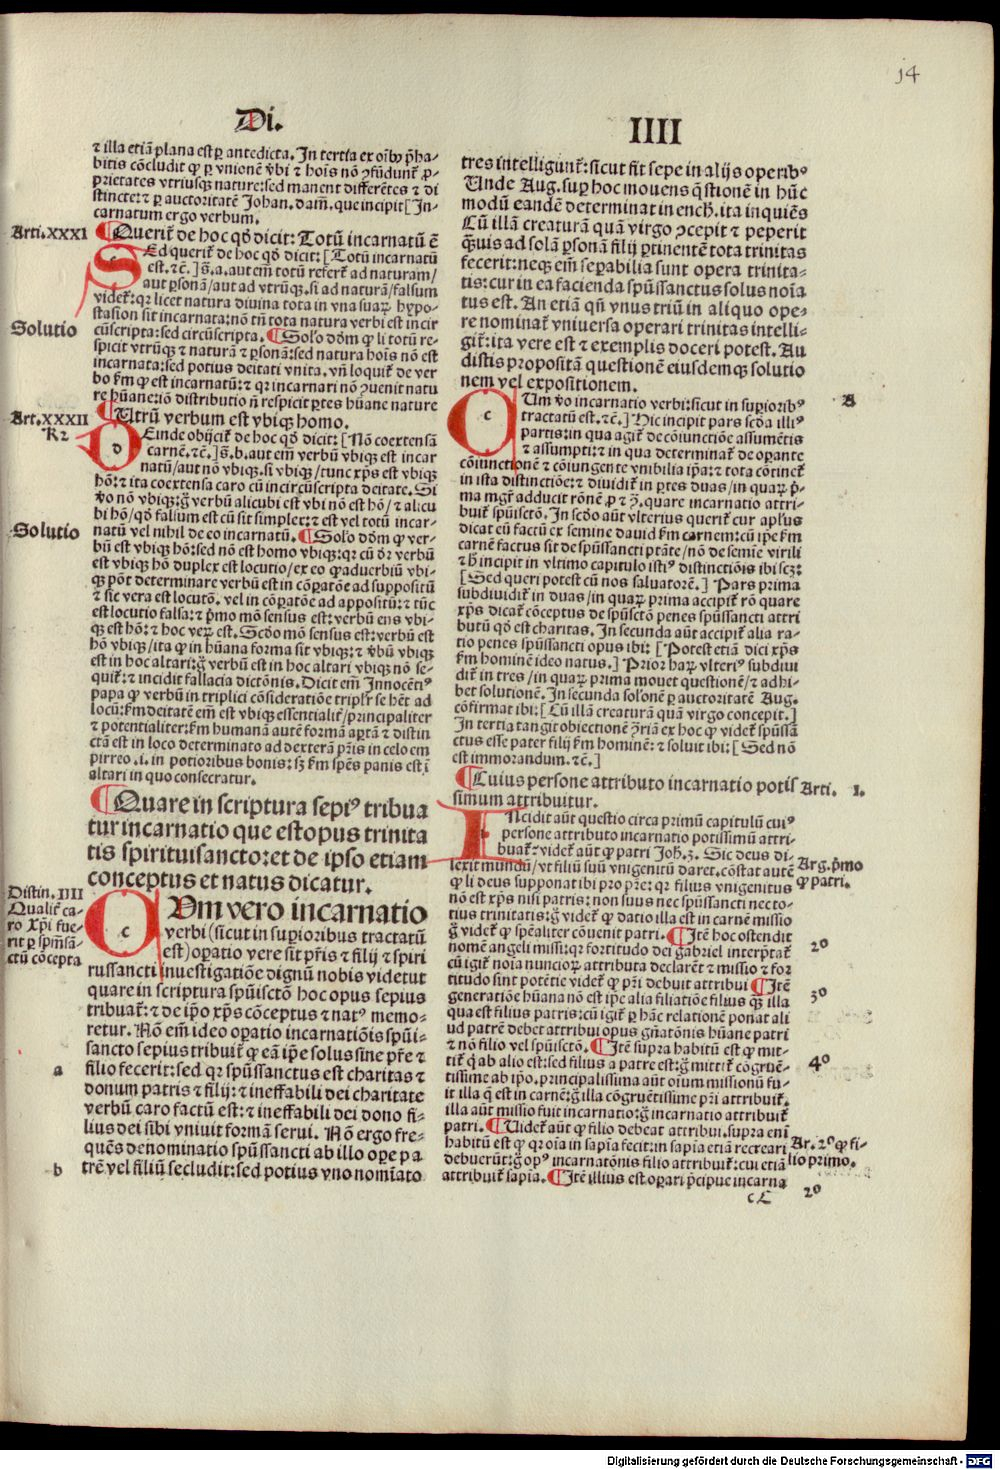 14
Di.
IIII
⁊ illa etiã plana est ꝑ antedicta. In tertia ex oĩbꝰ p̃ha-
bitis cõcludit ꝙ ꝑ vnionẽ v̾bi ⁊ hoĩs nõ ꝯfũdunt̾ ꝓ-
prietates vtriusqꝫ nature: sed manent differẽtes ⁊ di
stincte: ⁊ ꝑ auctoritatẽ Johan. dam̃. que incipit [In-
carnatum ergo verbum.
Arti. XXXI
¶Querit̾ de hoc qđ dicit: Totũ incarnatũ ẽ
SEd querit̾ de hoc qđ dicit: [Totũ incarnatũ
est. ⁊c̃.] g̃. a. aut em̃ totũ refert̾ ad naturam/
aut ꝑsonã/aut ad vtrũqꝫ. si ad naturã/falsum
videt̾: qꝛ licet natura diuina tota in vna suaꝝ hypo-
stasion sit incarnata: nõ tñ tota natura verbi est in cir
Solutio
cũscripta: sed circũscripta. ¶Solo᷒ dõm ꝙ li totũ re-
spicit vtrũqꝫ ⁊ naturã ⁊ ꝑsonã: sed natura hoĩs nõ est
incarnata: sed potius deitati vnita. vñ loquit̾ de ver
bo ẜm ꝙ est incarnatũ: ⁊ qꝛ incarnari nõ ꝯuenit natu
re hũane: iõ distributio ñ respicit ꝑtes hũane nature
Art. XXXII
¶Utrũ verbum est vbiqꝫ homo.
R2
DEinde obijcit̾ de hoc qđ dicit: [Nõ coextensã
carnẽ. ⁊c̃.] g̃. b. aut em̃ verbũ vbiqꝫ est incar
natũ/aut nõ vbiqꝫ. si vbiqꝫ/tunc xp̃s est vbiqꝫ
hõ: ⁊ ita coextensa caro cũ incircũscripta deitate. Si
v̾o nõ vbiqꝫ: g̃ verbũ alicubi est vbi nõ est hõ/⁊ alicu
bi hõ/qđ falsum est cũ sit simplex: ⁊ est vel totũ incar-
Solutio
natũ vel nihil de eo incarnatũ. ¶Solo᷒ dõm ꝙ ver-
bũ est vbiqꝫ hõ: sed nõ est homo vbiqꝫ: qꝛ cũ dr̃ verbũ
est vbiqꝫ hõ duplex est locutio/ex eo ꝙ aduerbiũ vbi-
qꝫ põt determinare verbũ est in cõꝑatõe ad suppositũ
⁊ sic vera est locutõ. vel in cõꝑatõe ad appositũ: ⁊ tũc
est locutio falsa: ⁊ p̾mo mõ sensus est: verbũ ens vbi-
qꝫ est hõ: ⁊ hoc veꝝ est. Scđo mõ sensus est: verbũ est
hõ vbiqꝫ/ita ꝙ in hũana forma sit vbiqꝫ: ⁊ v̾bũ vbiqꝫ
est in hoc altari: g̃ verbũ est in hoc altari vbiqꝫ nõ se-
quit̾: ⁊ incidit fallacia dictõnis. Dicit em̃ Innocẽtiꝰ
papa ꝙ verbũ in triplici cõsideratiõe triplr̃ se hẽt ad
locũ: ẜm deitatẽ em̃ est vbiqꝫ essentialit̾/principaliter
⁊ potentialiter: ẜm humanã autẽ formã aꝑtã ⁊ distin
ctã est in loco determinato ad dexterã pr̃is in celo em
pirreo .i. in potioribus bonis: sꝫ ẜm spẽs panis est ĩ
altari in quo consecratur.
¶Quare in scriptura sepiꝰ tribua
tur incarnatio que est opus trinita
tis spirituisancto: et de ipso etiam
conceptus et natus dicatur.
Distin. IIII
Qualit̾ ca-
ro xp̃i fue-
rit ꝑ sp̃m sã-
ctũ cõcepta
CUm vero incarnatio
verbi (sicut in suꝑioribus tractatũ
est) oꝑatio vere sit pr̃is ⁊ filij ⁊ spiri
russancti inuestigatiõe dignũ nobis videtut
quare in scriptura spũiscto᷒ hoc opus sepius
tribuat̾: ⁊ de ip̃o xp̃s cõceptus ⁊ natꝰ memo-
retur. Nõ em̃ ideo oꝑatio incarnatiõis spũi-
sancto sepius tribuit̾ ꝙ eã ip̃e solus sine pr̃e ⁊
a
filio fecerit: sed qꝛ spũssanctus est charitas ⁊
donum patris ⁊ filij: ⁊ ineffabili dei charitate
verbũ caro factũ est: ⁊ ineffabili dei dono fi-
lius dei sibi vniuit formã serui. Nõ ergo fre-
quẽs denominatio spũssancti ab illo oꝑe pa
b
trẽ vel filiũ secludit: sed potius vno nomĩato
tres intelligunt̾: sicut fit sepe in alijs operibꝰ
Unde Aug. suꝑ hoc mouens q̃stionẽ in hũc
modũ eandẽ determinat in ench̾. ita inquiẽs
Cũ illã creaturã quã virgo ꝯcepit ⁊ peperit
q̃uis ad solã ꝑsonã filij ꝑtinentẽ tota trinitas
fecerit: neqꝫ em̃ seꝑabilia sunt opera trinita-
tis: cur in ea facienda spũssanctus solus noĩa
tus est. An etiã qñ vnus triũ in aliquo ope-
re nominat̾ vniuersa operari trinitas intelli-
git̾: ita vere est ⁊ exemplis doceri potest. Au
distis propositã questionẽ eiusdemqꝫ solutio
nem vel expositionem.
CUm v̾o incarnatio verbi: sicut in suꝑioribꝰ
A
tractatũ est. ⁊c̃.] Hic incipit pars scđa illiꝰ
partis: in qua agit̾ de cõiunctiõe assumẽtis
⁊ assumpti: ⁊ in qua determinat̾ de oꝑante
cõiunctionẽ ⁊ cõiungente vnibilia ip̃a: ⁊ tota cõtinet̾
in ista distinctiõe: ⁊ diuidit̾ in ꝑtes duas/in quaꝝ p̾-
ma mgr̃ adducit rõnẽ ꝓ ⁊ ꝯ. quare incarnatio attri-
buit̾ spũiscto᷒. In scđo aũt vlterius querit̾ cur apl̃us
dicat eũ factũ ex semine dauid ẜm carnem: cũ ip̃e ẜm
carnẽ factus sit de spũssancti ptãte/nõ de semĩe virili
⁊ h̾ incipit in vltimo capitulo istiꝰ distinctiõis ibi scꝫ:
[Sed queri potest cũ nos saluatorẽ.] Pars prima
subdiuidit̾ in duas/in quaꝝ prima accipit̾ rõ quare
xp̃s dicat̾ cõceptus de spũscto᷒ penes spũssancti attri
butũ qđ est charitas. In secunda aũt accipit̾ alia ra-
tio penes spũssancti opus ibi: [Potest etiã dici xp̃s
ẜm hominẽ ideo natus.] Prior haꝝ vlteriꝰ subdiui
dit̾ in tres/in quaꝝ prima mouet questionẽ/⁊ adhi-
bet solutionẽ. In secunda solo᷒nẽ ꝑ auctoritatẽ Aug.
cõfirmat ibi: [Cũ illã creaturã quã virgo concepit.]
In tertia tangit obiectionẽ ꝯr̃iã ex hoc ꝙ videt̾ spũssã
ctus esse pater filij ẜm hominẽ: ⁊ soluit ibi: [Sed nõ
est immorandum. ⁊c̃.]
¶Cuius persone attributo incarnatio potis
Arti. I.
simum attribuitur.
INcidit aũt questio circa primũ capitulũ cuiꝰ
persone attributo incarnatio potissimũ attri-
buat̾: videt̾ aũt ꝙ patri Joh̾. 3. Sic deus di-
Arg. p̾mo
ꝙ patri.
lexit mundũ/vt filiũ suũ vnigenitũ daret. cõstat autẽ
ꝙ li deus supponat ibi pro pr̃e: qꝛ filius vnigenitus
nõ est xp̃s nisi patris: non suus nec spũssancti nec to-
tius trinitatis: g̃ videt̾ ꝙ datio illa est in carnẽ missio
g̃ videt̾ ꝙ sp̃ealiter cõuenit patri. ¶Itẽ hoc ostendit
2º
nomẽ angeli missi: qꝛ fortitudo dei gabriel interp̃tat̾
cũ igit̾ noĩa nuncioꝝ attributa declarẽt ⁊ missio ⁊ for
titudo sint potẽtie videt̾ ꝙ pr̃i debuit attribui ¶Itẽ
3º
generatiõe hũana nõ est ip̃e alia filiatiõe filius qꝫ illa
qua est filius patris: cũ igit̾ ꝑ hãc relationẽ ponat̾ ali
ud patrẽ debet attribui opus gñatõnis hũane patri
⁊ nõ filio vel spũiscto᷒. ¶Itẽ supra habitũ est ꝙ mit-
4º
tit̾ q̾ ab alio est: sed filius a patre est: g̃ mittit̾ cõgruẽ-
tissime ab ip̃o. principalissima aũt oĩum missionũ fu-
it illa q̃ est in carnẽ: g̃ illa cõgruẽtissime pr̃i attribuit̾.
illa aũt missio fuit incarnatio: g̃ incarnatio attribuit̾
patri. ¶Uidet̾ aũt ꝙ filio debeat attribui. supra eni
Ar. 2º ꝙ fi-
lio primo.
habitũ est ꝙ qꝛ oĩa in sapĩa fecit: in sapĩa etiã recreari
debuerũt: g̃ opꝰ incarnatõnis filio attribuit̾: cui etiã
attribuit̾ sapĩa. ¶Itẽ illius est oꝑari p̃cipue incarna
2º
c L
Digitalisierung gefördert durch die Deutsche Forschungsgemeinschaft - DFG